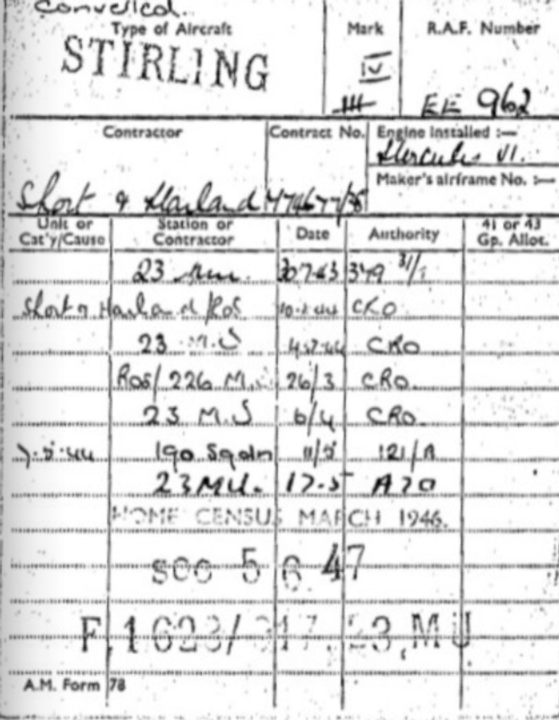 Converted.
Type of Aircraft Mark R.A.F. Number
STIRLING IV III EE 962
Contractor Contract No. Engine installed :—
Hercules VI.
Maker's airframe No. :—
Short & Harland
Unit or Cat'y/Cause Station or Contractor Date Authority 41 or 43 Gp. Allot.
23 30.7.43 349 31/7
Short & Harland/Ros 10.2.44 CRO
23 M.U CRO
Ros/226 M.U 26/3 CRO.
23 M.U 6/4 CRO.
7.5.44 190 Sqdn 11/5 121/A
23 MU. 17.5 A70
HOME CENSUS MARCH 1946.
SOC 5 6 47
F.1623/ 23.MU
A.M. Form 78